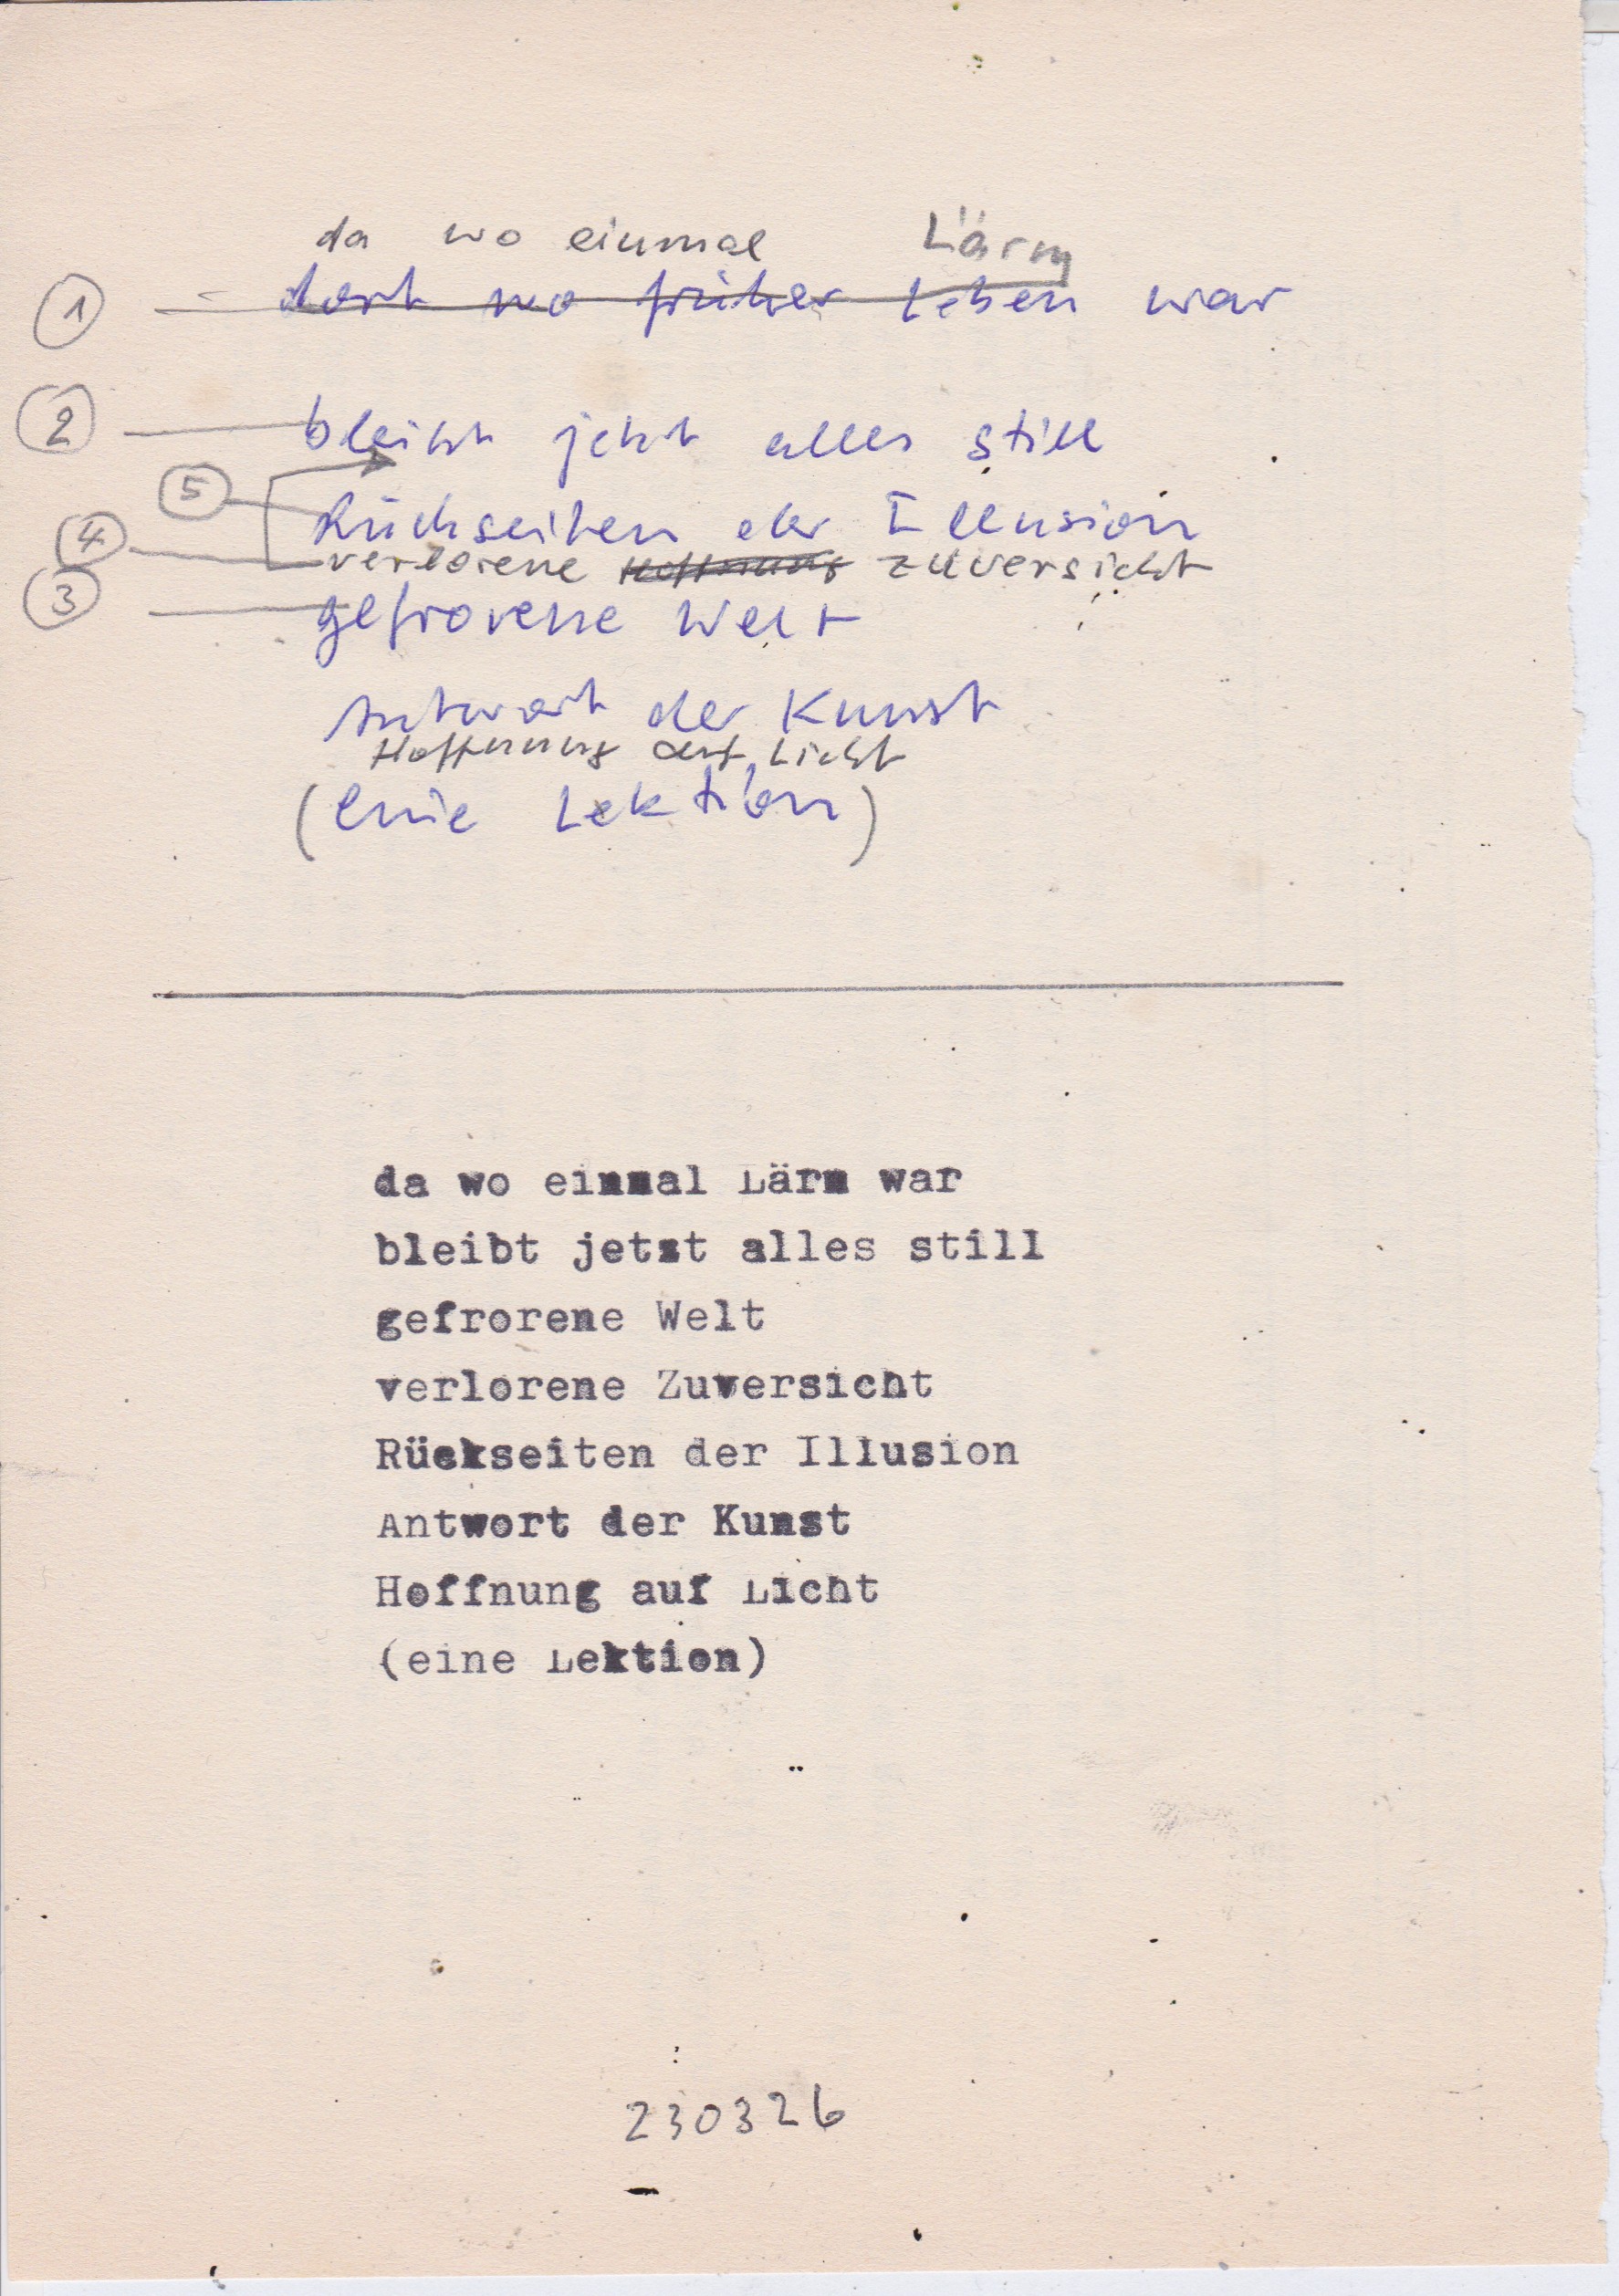 da wo einmal Lärm
① dort wo früher Leben war
② bleibt jetzt alles still
⑤ Rückseiten der Illusion
④ verlorene Hoffnung Zuversicht
③ gefrorene Welt
Antwort der Kunst
Hoffnung auf Licht
(eine Lektion)
da wo einmal Lärm war
bleibt jetzt alles still
gefrorene Welt
verlorene Zuversicht
Rückseiten der Illusion
Antwort der Kunst
Hoffnung auf Licht
(eine Lektion)
230326